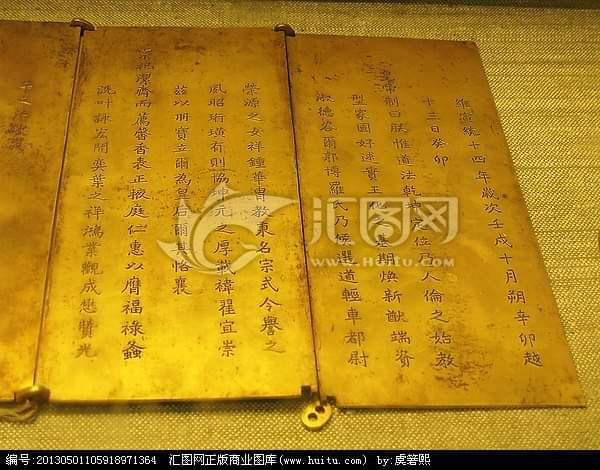 維宣統十四年歲次壬戌十月朔辛卯越
十三日癸卯
皇帝制曰朕惟道法乾坤定位乃人倫之始教
型家國好逑王化之基期煥新猷端資
淑德咨爾郭博羅氏乃候選道輕車都尉
榮源之女祥鐘華冑教秉名宗式令譽之
夙昭珩璜有則協坤元之厚載褘翟宜崇
茲以冊寶立爾為皇后爾其恪襄
宗祀潔齊而薦馨香表正掖庭仁惠以膺福祿螽
詵叶詠宏開奕葉之祥鴻業觀成懋贊光
天之治欽哉
汇图网
www.huitu.com
编号:20130501105918971364 汇图网正版商业图库(www.huitu.com) by:虞箬熙